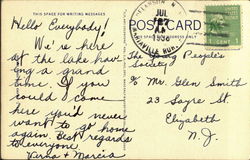 THIS SPACE FOR WRITING MESSAGES
POSTCARD
Hello Everybody!
We're here
at the lake hav-
ing a grand
time. If you
could come
here you'd never
want to go home
again. Best regards
to everyone.
Verna & Marcia
JUL
27
1936
The Young People's
Society
c/o Mr. Glen Smith
23 Sayre St
Elizabeth
N.J.